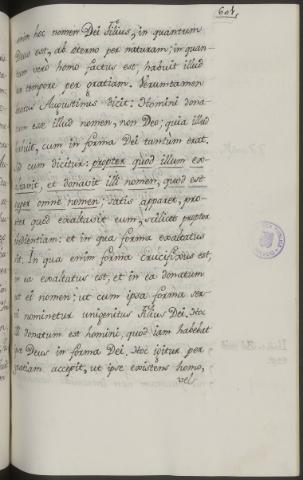 601.
enim hoc nomen Dei Filius, in quantum
Deus est, ab æterno per naturam; in quan-
tum verò homo factus est, habuit illud
ex tempore per gratiam. Verumtamen
Beatus Augustinus dicit: Homini dona-
tum esse illud nomen, non Deo; quia illud
habuit, cum in forma Dei tantùm erat.
Sed cum dicitur: propter quòd illum ex-
altavit, et donavit illi nomen, quod est
super omne nomen: satis apparet, pro-
pter quod exaltavit eum, scilicet propter
obedientiam: et in qua forma exaltatus
sit. In qua enim forma crucifixus est,
in ea exaltatus est, et in ea donatum
est ei nomen; ut cum ipsa forma ser-
vi nominetur unigenitus Filius Dei. Hoc
donatum est homini, quod jam habebat
Deus in forma Dei. Hoc igitur per
gratiam accepit, ut ipse existens homo,
vel